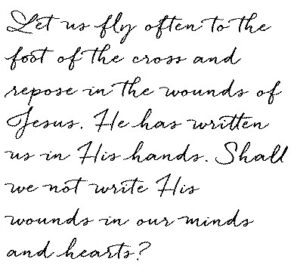 Let us fly often to the
foot of the cross and
repose in the wounds of
Jesus. He has written
us in His hands. Shall
we not write His
wounds in our minds
and hearts?